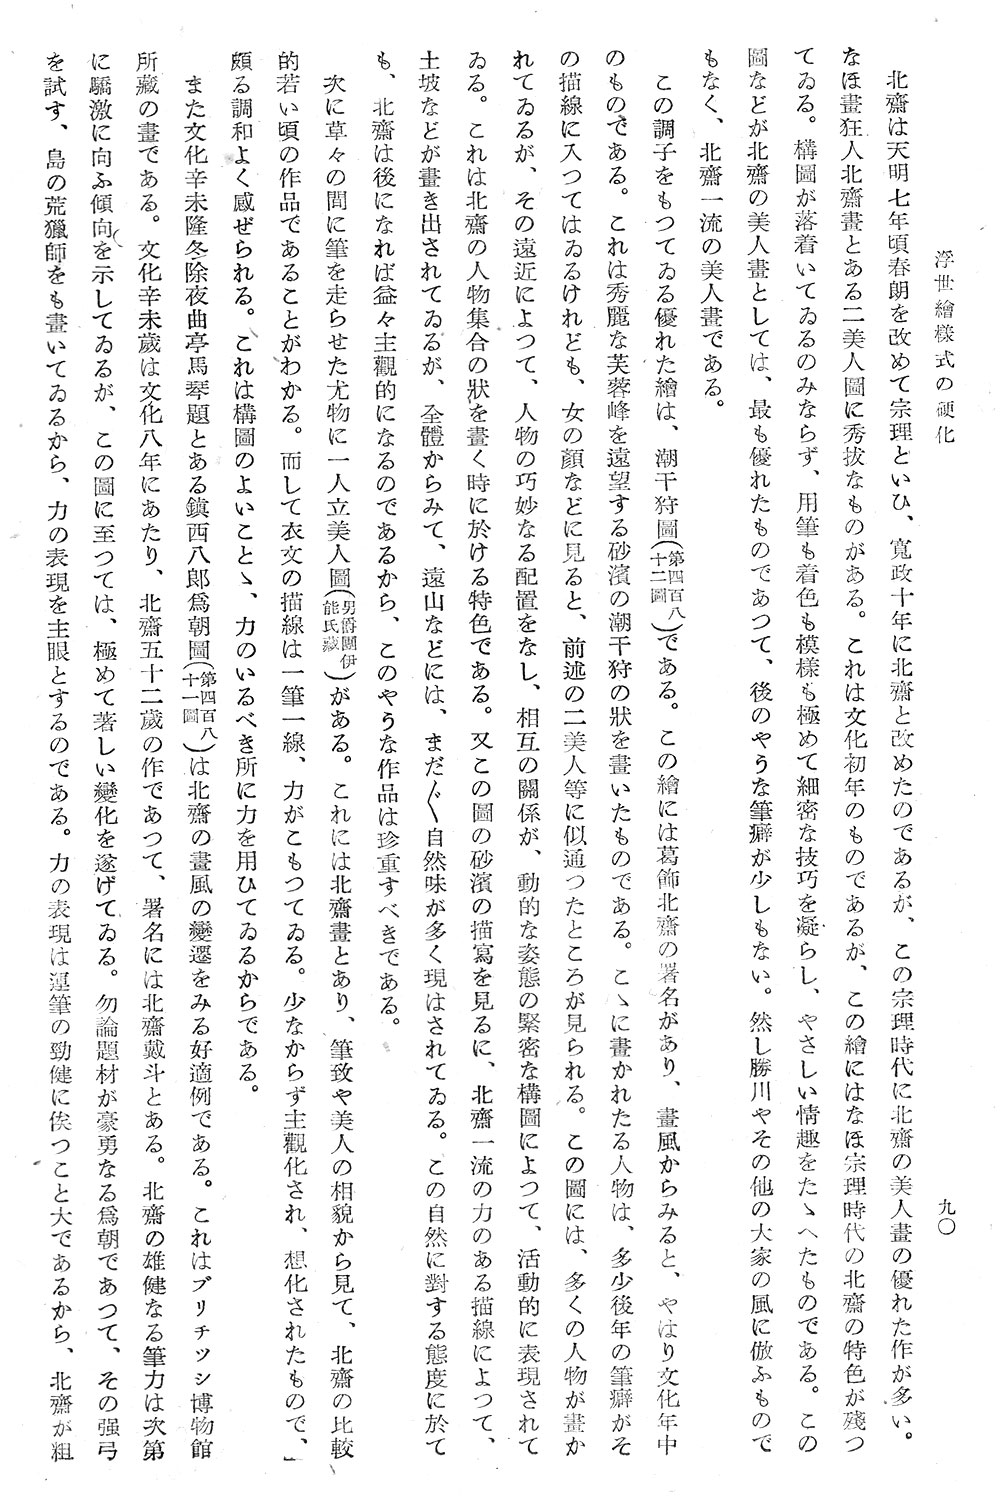 浮世繪樣式の硬化
九〇
北齋は天明七年頃春朗を改めて宗理といひ、寬政十年に北齋と改めたのであるが、この宗理時代に北齋の美人畫の優れた作が多い。
なほ畫狂人北齋畫とある二美人圖に秀拔なものがある。これは文化初年のものであるが、この繪にはなほ宗理時代の北齋の特色が殘つ
てゐる。構圖が落着いてゐるのみならず、用筆も着色も模樣も極めて細密な技巧を凝らし、やさしい情趣をたゝへたものである。この
圖などが北齋の美人畫としては、最も優れたものであつて、後のやうな筆癖が少しもない。然し勝川やその他の大家の風に倣ふもので
もなく、北齋一流の美人畫である。
この調子をもつてゐる優れた繪は、潮干狩圖(第四百八十二圖)である。この繪には葛飾北齋の署名があり、畫風からみると、やはり文化年中
のものである。これは秀麗な芙蓉峰を遠望する砂濱の潮干狩の狀を畫いたものである。こゝに畫かれたる人物は、多少後年の筆癖がそ
の描線に入つてはゐるけれども、女の顏などに見ると、前述の二美人等に似通つたところが見られる。この圖には、多くの人物が畫か
れてゐるが、その遠近によつて、人物の巧妙なる配置をなし、相互の關係が、動的な姿態の緊密な構圖によつて、活動的に表現されて
ゐる。これは北齋の人物集合の狀を畫く時に於ける特色である。又この圖の砂濱の描寫を見るに、北齋一流の力のある描線によつて、
土坡などが畫き出されてゐるが、全體からみて、遠山などには、まだ〱自然味が多く現はされてゐる。この自然に對する態度に於て
も、北齋は後になれば益々主觀的になるのであるから、このやうな作品は珍重すべきである。
次に草々の間に筆を走らせた尤物に一人立美人圖(男爵團伊能氏藏)がある。これには北齋畫とあり、筆致や美人の相貌から見て、北齋の比較
的若い頃の作品であることがわかる。而して衣文の描線は一筆一線、力がこもつてゐる。少なからず主觀化され、想化されたもので、
頗る調和よく感ぜられる。これは構圖のよいことゝ、力のいるべき所に力を用ひてゐるからである。
また文化辛未隆冬除夜曲亭馬琴題とある鎭西八郞爲朝圖(第四百八十一圖)は北齋の畫風の變遷をみる好適例である。これはブリチッシ博物館
所藏の畫である。文化辛未歲は文化八年にあたり、北齋五十二歲の作であつて、署名には北齋戴斗とある。北齋の雄健なる筆力は次第
に驕激に向ふ傾向を示してゐるが、この圖に至つては、極めて著しい變化を遂げてゐる。勿論題材が豪勇なる爲朝であつて、その强弓
を試す、島の荒獵師をも畫いてゐるから、力の表現を主眼とするのである。力の表現は運筆の勁健に俟つこと大であるから、北齋が粗